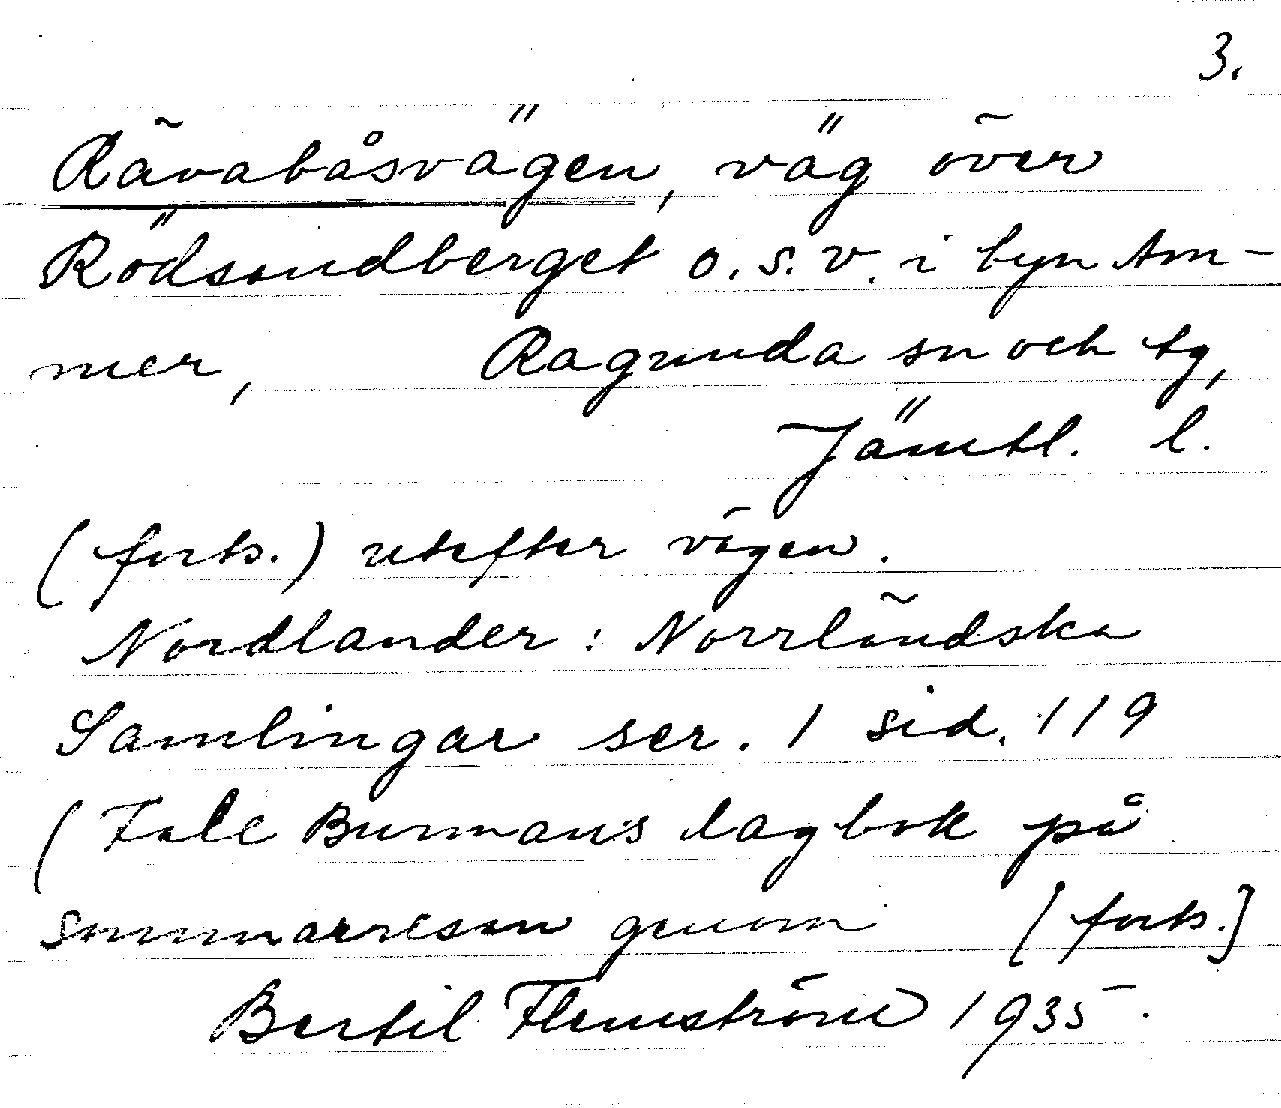 3.
Rävabåsvägen, väg över
Rödsandberget o.s.v. i byn Am-
mer, Ragunda sn och tg,
Jämtl. l.
(forts.) utefter vägen.
Nordlander: Norrländska
Samlingar ser. 1 sid. 119
(Fale Burmans dagbok på
sommarresan genom [forts.]
Bertil Flemström 1935.